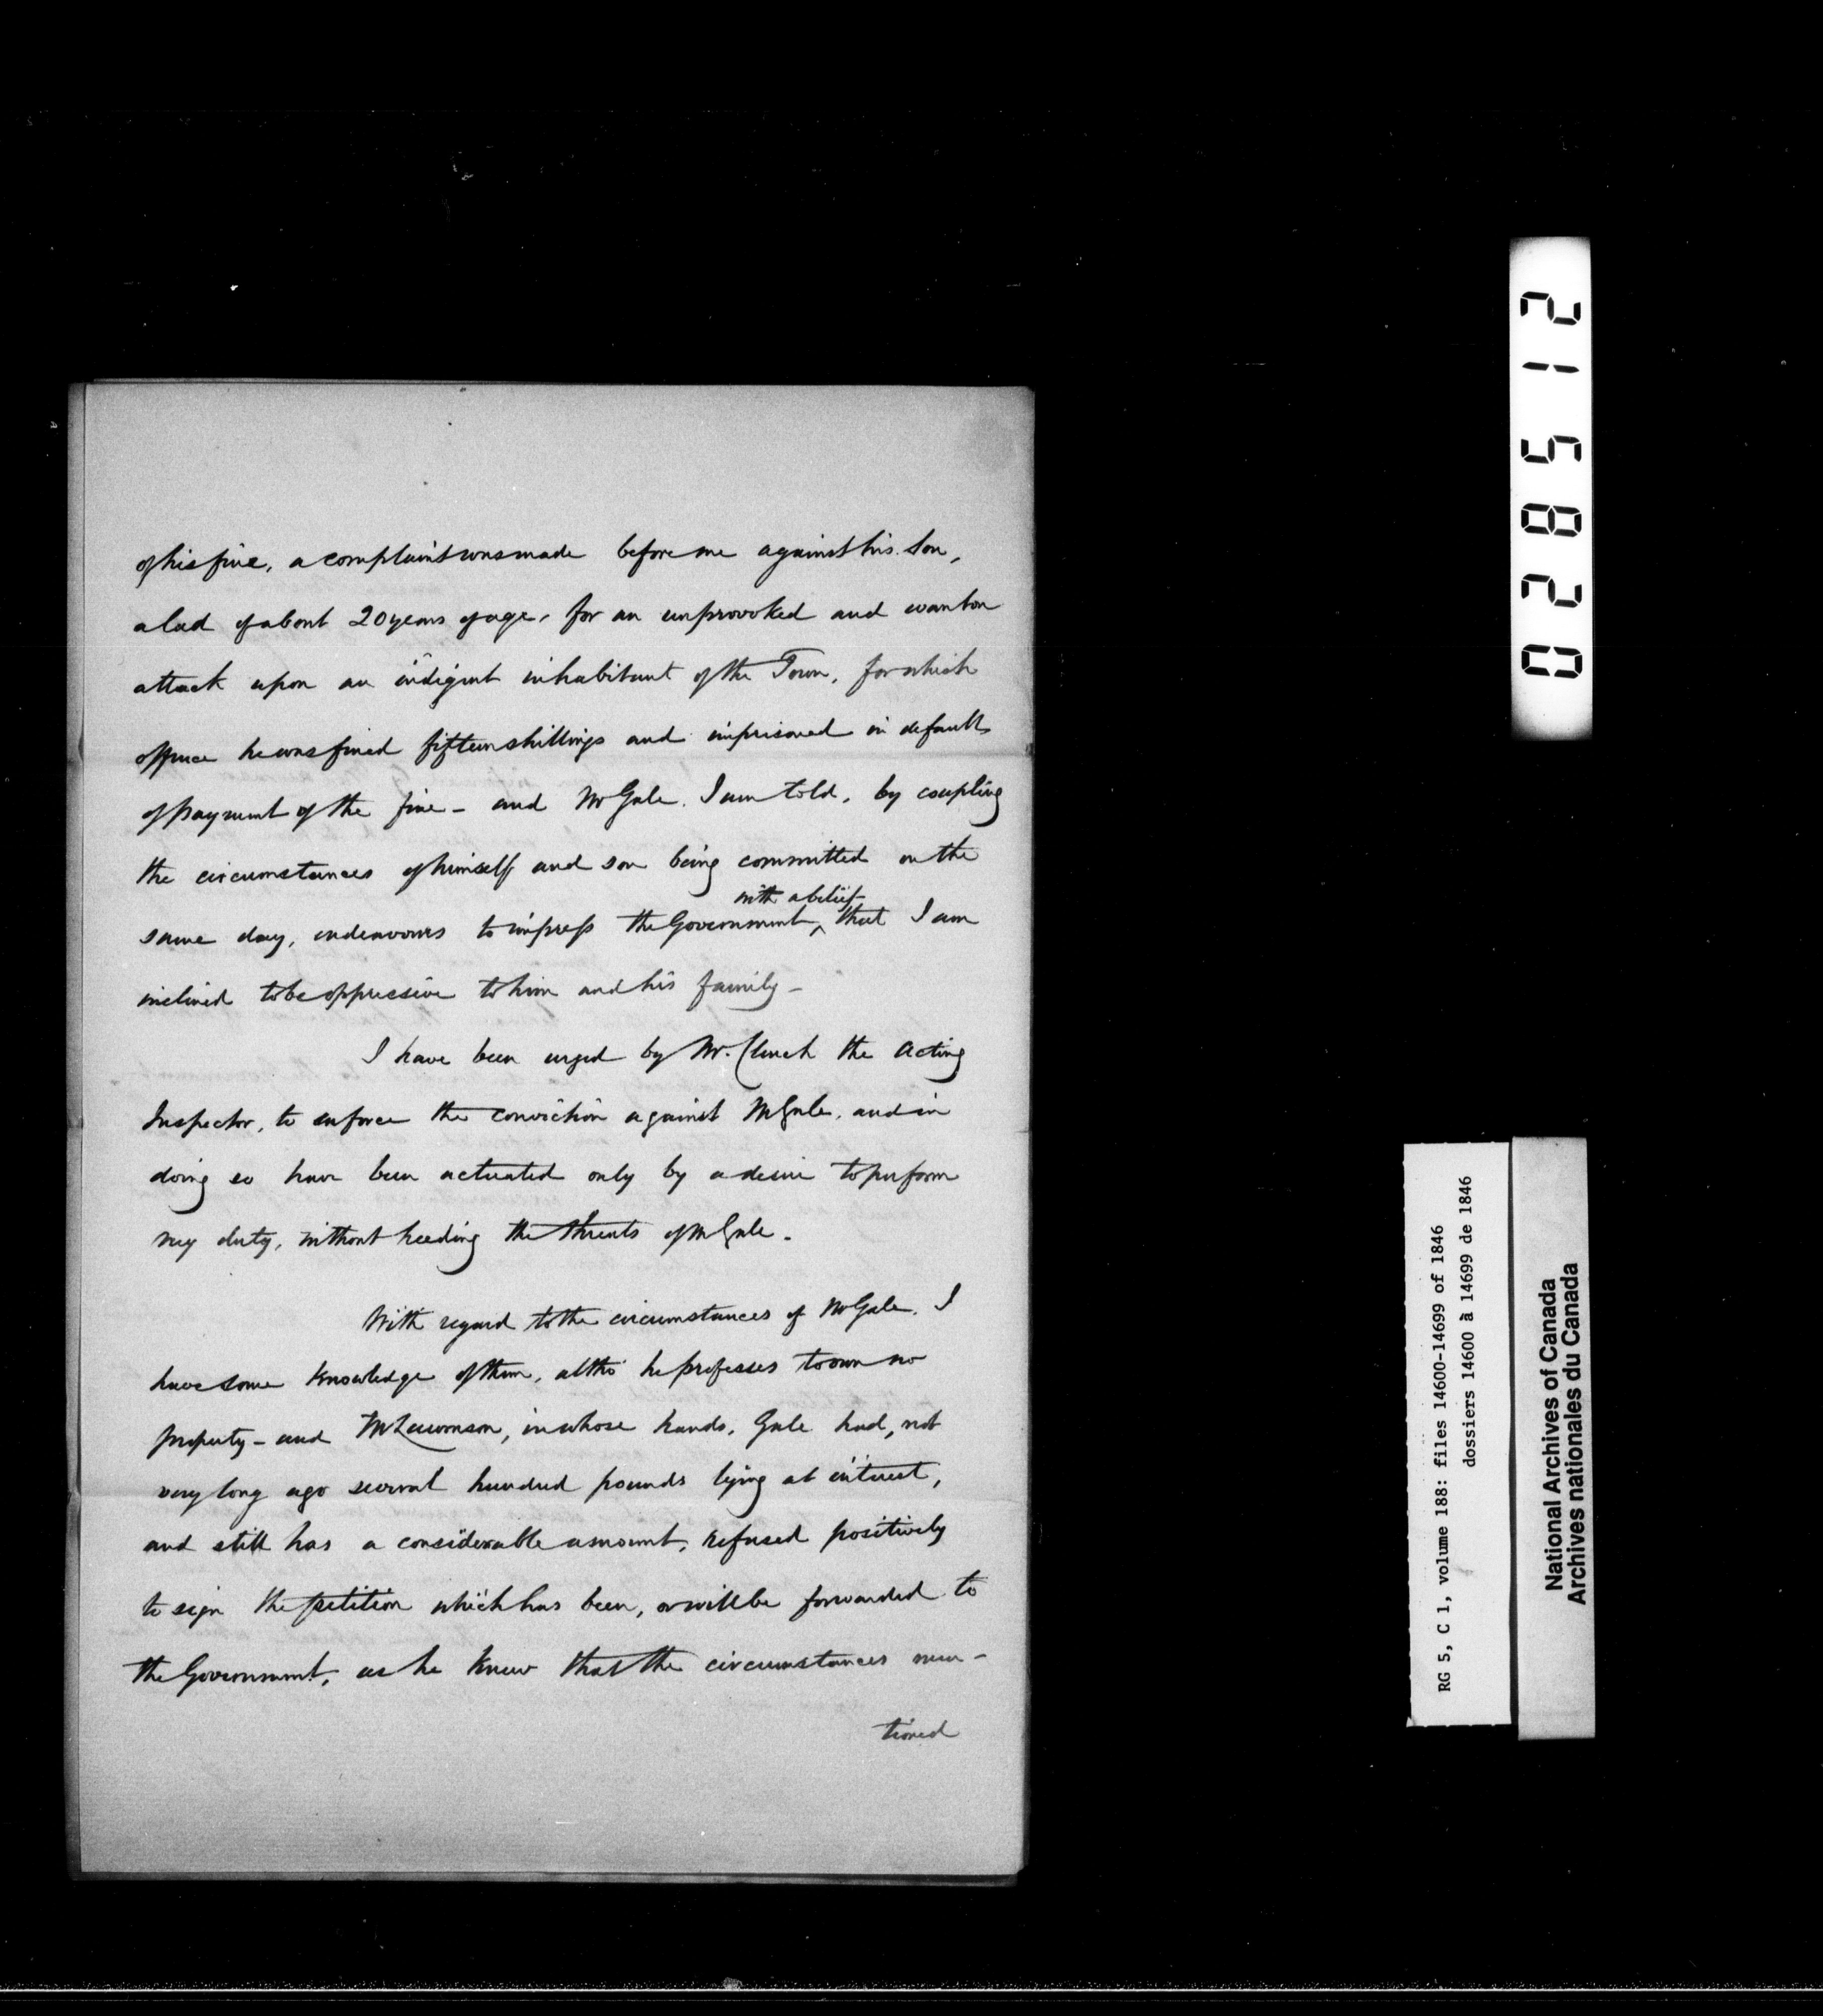 of his fine, a complaint was made before me against his Son,
a lad of about 20 years of age, for an unprovoked and wanton
attack upon an indigent inhabitant of the Town, for which
offence he was fined fifteen shillings and imprisoned in default
of payment of the fine – and Mr Gale, I am told, by coupling
the circumstances of himself and son being committed on the
with a belief
same day, endeavours to impress the Government ^ that I am
inclined to be oppressive to him and his family –
I have been urged by Mr. Clench the Acting
Inspector, to enforce the conviction against Mr Gale, and in
doing so have been actuated only by a desire to perform
my duty, without heeding the threats of Mr Gale –
With regard to the circumstances of Mr Gale, I
have some Knowledge of them, altho' he professes to own no
property – and Mr Lawrason, in whose hands, Gale had, not
very long ago several hundred pounds lying at interest,
and still has a considerable amount, refused positively
to sign the petition which has been, or will be forwarded to
the Government, as he knew that the circumstances men-
tioned
028512
RG 5, C 1, volume 188: files 14600-14699 of 1846
dossiers 14600 à 14699 de 1846
National Archives of Canada
Archives nationales du Canada